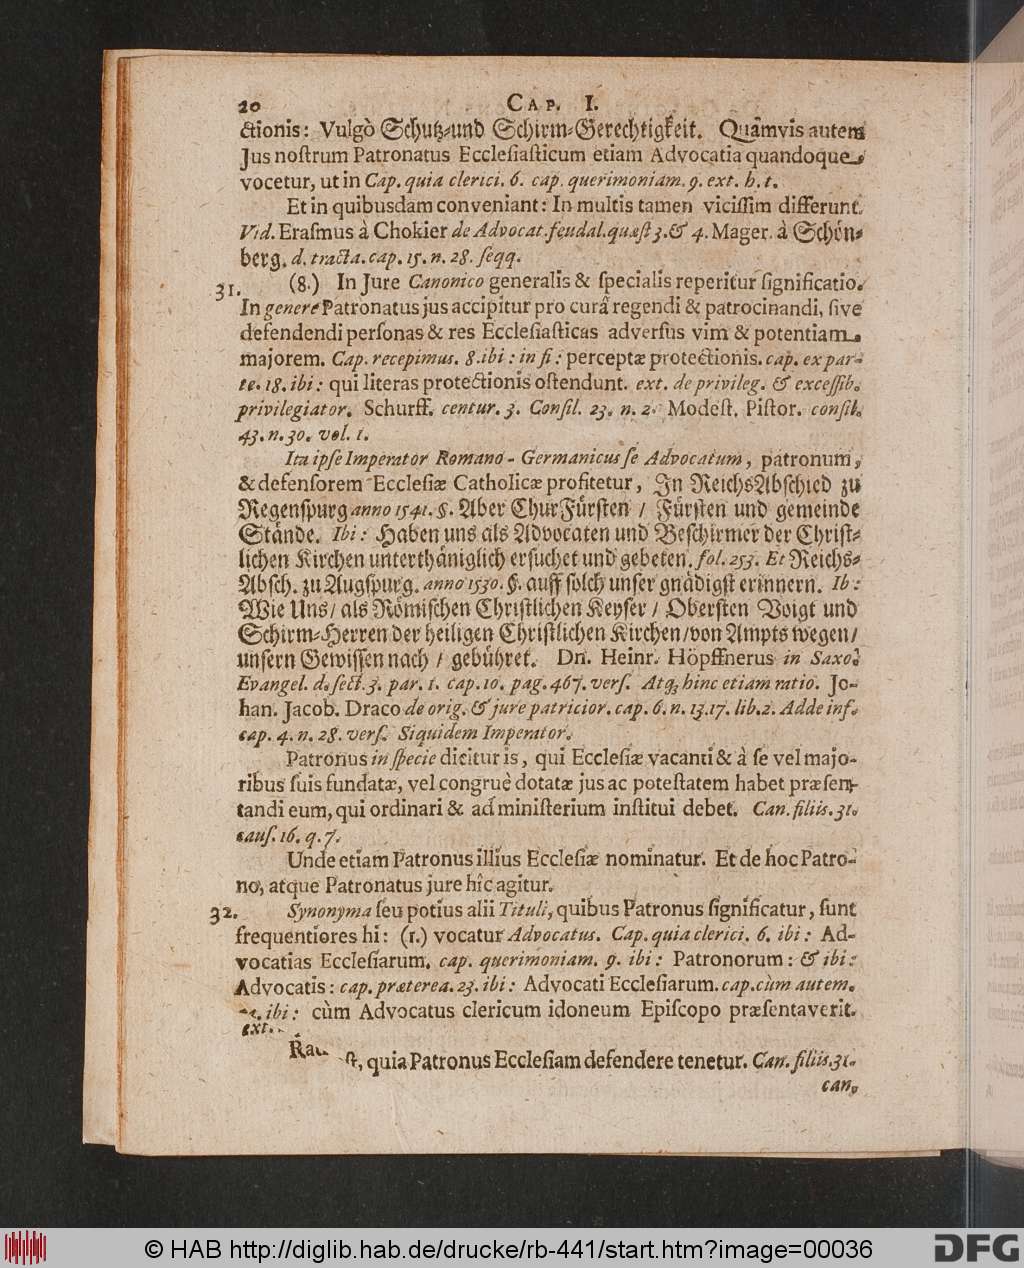 20 CAP. I.
ctionis: Vulgò Schutz-und Schirm-Gerechtigkeit. Quāmvis autem
Jus noſtrum Patronatus Eccleſiaſticum etiam Advocatia quandoque
vocetur, ut in Cap. quia clerici. 6. cap. querimoniam. 9. ext. h. t.
Et in quibusdam conveniant: In multis tamen viciſſim differunt.
Vid. Eraſmus â Chokier de Advocat. feudal. quæſt 3. & 4. Mager. à Schön-
berg. d. tracta. cap. 15. n. 28. ſeqq.
31. (8.) In Jure Canonico generalis & ſpecialis reperitur ſignificatio.
In genere Patronatus jus accipitur pro curâ regendi & patrocinandi, ſive
defendendi perſonas & res Eccleſiaſticas adverſus vim & potentiam
majorem. Cap. recepimus. 8. ibi: in fi: perceptæ protectionis. cap. ex par-
te. 18. ibi: qui literas protectionis oſtendunt. ext. de privileg. & exceſſib.
privilegiator. Schurff. centur. 3. Conſil. 23. n. 2. Modeſt. Piſtor. conſil.
43. n. 30. vol. 1.
Ita ipſe Imperator Romano-Germanicus ſe Advocatum, patronum,
& defenſorem Eccleſiæ Catholicæ profitetur, In ReichsAbſchied zu
Regenſpurg anno 1541. §. Aber ChurFürſten / Fürſten und gemeinde
Stände. Ibi: Haben uns als Advocaten und Beſchirmer der Chriſt-
lichen Kirchen unterthäniglich erſuchet und gebeten. fol. 253. Et Reichs-
Abſch. zu Augſpurg. anno 1530. §. auff ſolch unſer gnädigſt erinnern. Ib:
Wie Uns / als Römiſchen Chriſtlichen Keyſer / Oberſten Voigt und
Schirm-Herren der heiligen Chriſtlichen Kirchen / von Ampts wegen /
unſern Gewiſſen nach / gebühret. Dn. Heinr. Höpffnerus in Saxo.
Evangel. d. ſect. 3. par. 1. cap. 10. pag. 467. verſ. Atq; hinc etiam ratio. Jo-
han. Jacob. Draco de orig. & jure patricior. cap. 6. n. 13. 17. lib. 2. Adde inf.
cap. 4. n. 28. verſ. Siquidem Imperator.
Patronus in ſpecie dicitur is, qui Eccleſiæ vacanti & à ſe vel majo-
ribus ſuis fundatæ, vel congruè dotatæ jus ac poteſtatem habet præſen-
tandi eum, qui ordinari & ad miniſterium inſtitui debet. Can. filiis. 31.
cauſ. 16. q. 7.
Unde etiam Patronus illius Eccleſiæ nominatur. Et de hoc Patro-
no, atque Patronatus jure hîc agitur.
32. Synonyma ſeu potius alii Tituli, quibus Patronus ſignificatur, ſunt
frequentiores hi: (1.) vocatur Advocatus. Cap. quia clerici. 6. ibi: Ad-
vocatias Eccleſiarum. cap. querimoniam. 9. ibi: Patronorum: & ibi:
Advocatis: cap. præterea. 23. ibi: Advocati Eccleſiarum. cap. cùm autem.
ibi: cùm Advocatus clericum idoneum Epiſcopo præſentaverit.
ext.
quia Patronus Eccleſiam defendere tenetur. Can. filiis. 31.
can.
© HAB http://diglib.hab.de/drucke/rb-441/start.htm?image=00036 DFG